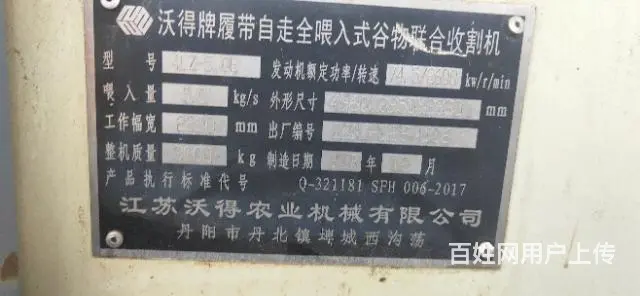 沃得牌履带自走全喂入式谷物联合收割机
型号 发动机额定功率/转速 kw/r/min
喂入量 kg/s 外形尺寸 mm
工作幅宽 mm 出厂编号
整机质量 kg 制造日期 年 月
产品执行标准代号 Q-321181 SFH 006-2017
江苏沃得农业机械有限公司
丹阳市丹北镇埤城西沟荡
百姓网用户上传